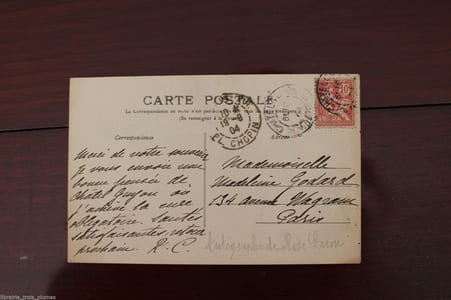 CARTE POSTALE
La Correspondance au recto n'est pas
(Se renseigner à la
Correspondance
Merci de votre
je vous envoie une
bonne pensée de
Châtel Guyon où
j'achève la cure
obligatoire Santés
satisfaisantes, retour
prochain. R. C.
Mademoiselle
Madeleine Godard
134 avenue Wagram
Paris
Autographe de Rose Caron
04
EL. CHOPIN
10
librairie_trois_plumes